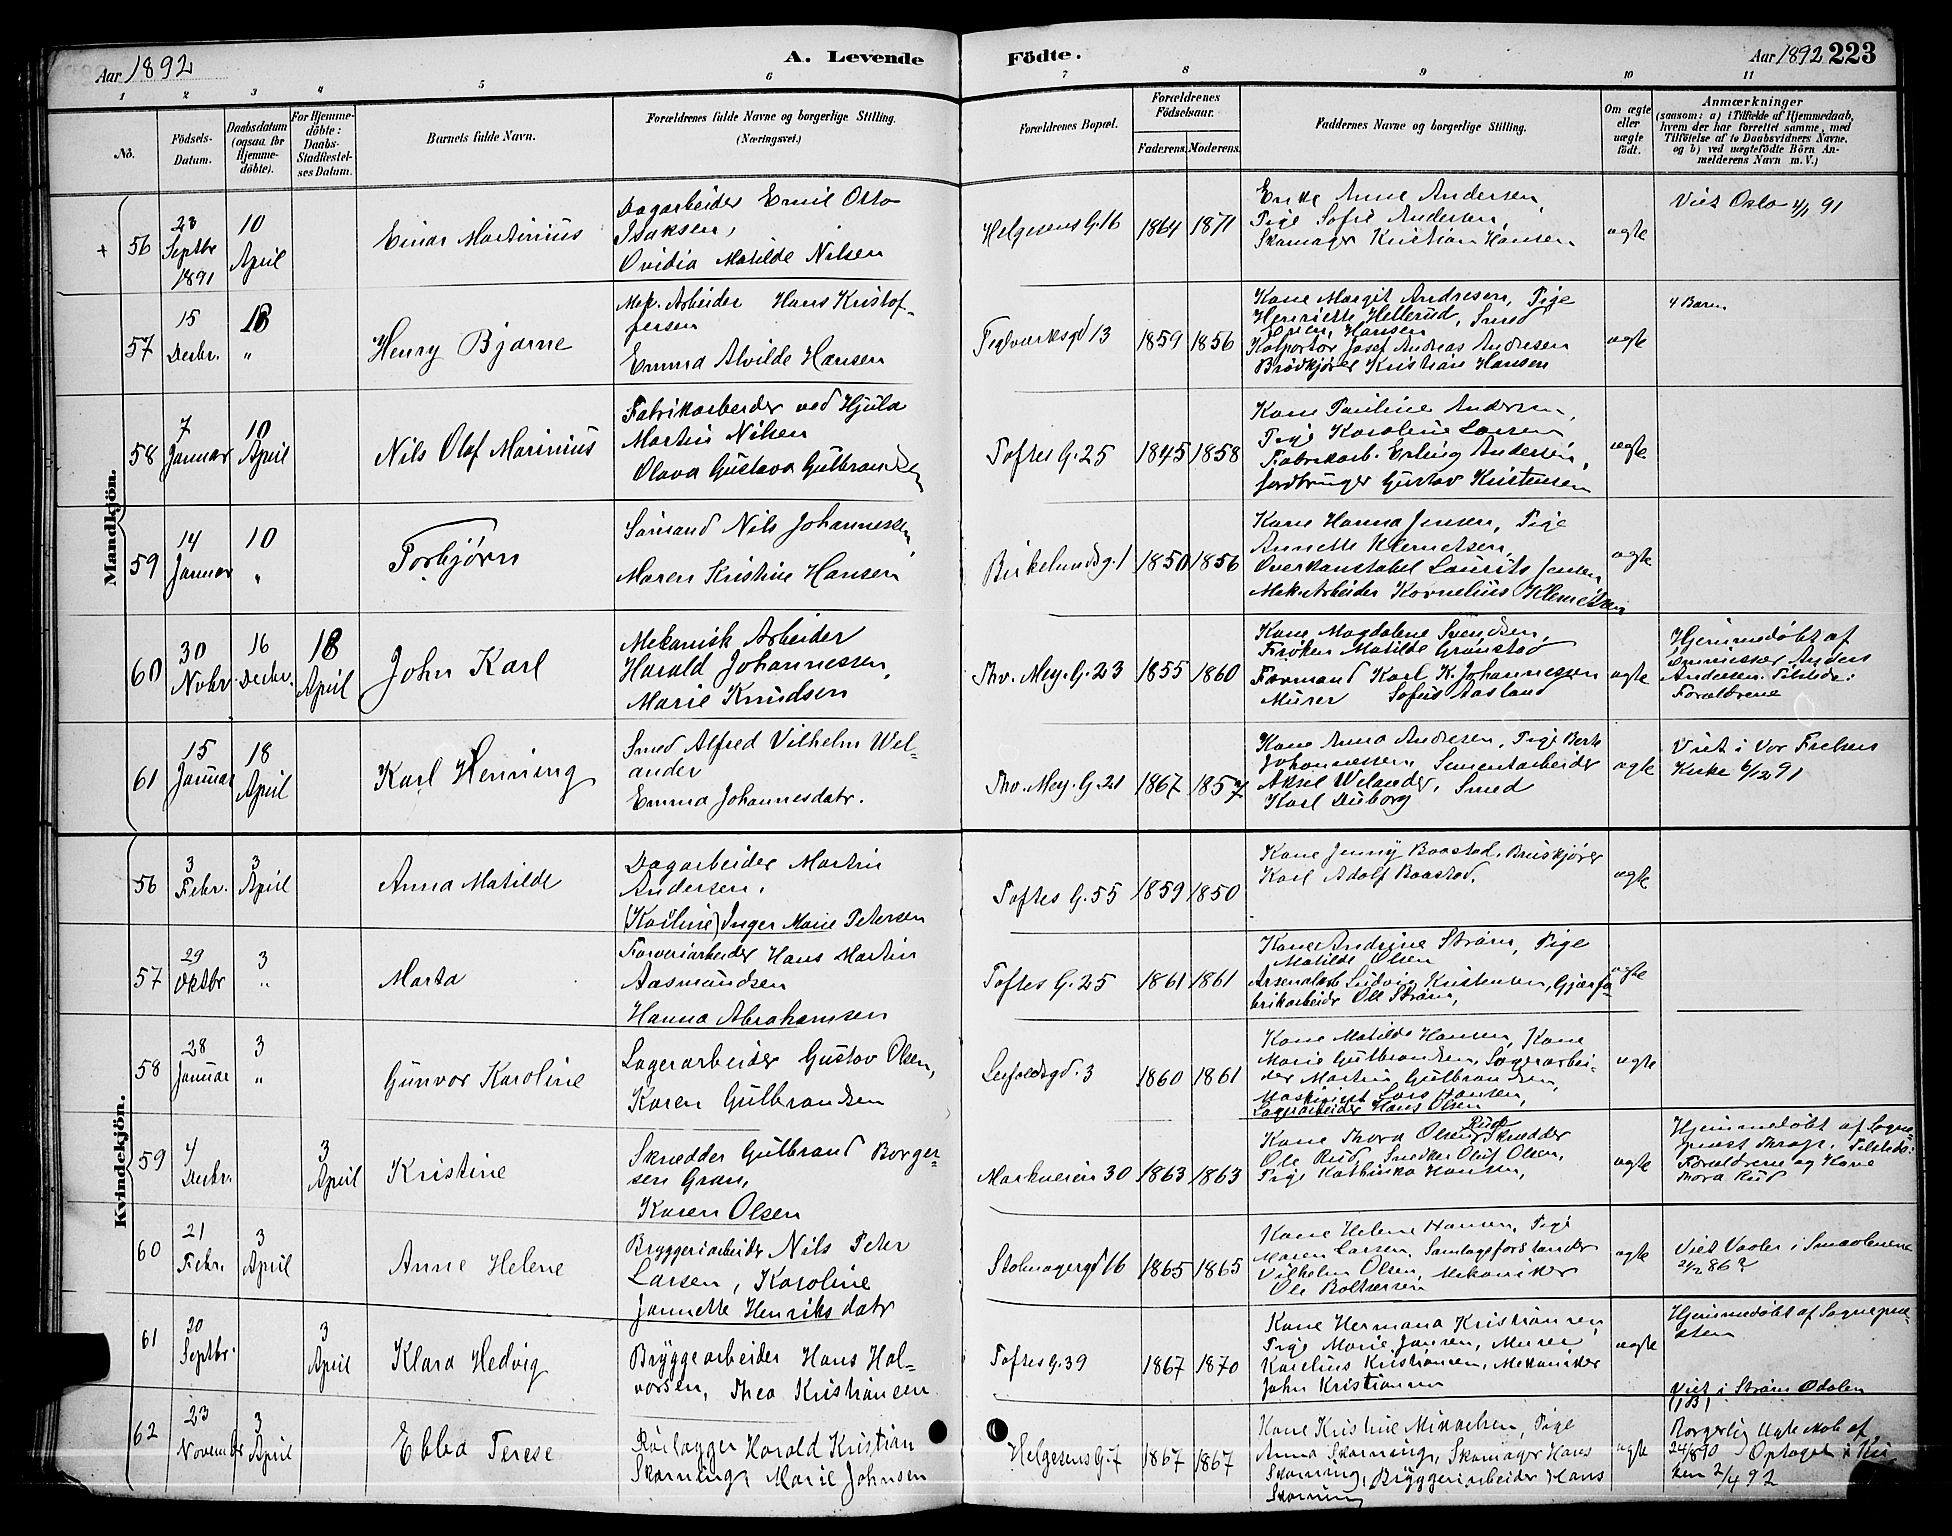 Aar 1892
A. Levende
Födte.
Aar 1892 223
1 2 3 4 5 6 7 8 9 10 11
No.
Födsels-Datum.
Daabsdatum (ogsaa for Hjemmedöbte).
For Hjemmedöbte: Daabs-Stadfæstelses Datum.
Barnets fulde Navn.
Forældrenes fulde Navne og borgerlige Stilling.
(Næringsvei.)
Forældrenes Bopæl.
Forældrenes Födselsaar.
Faderens. Moderens.
Faddernes Navne og borgerlige Stilling.
Om ægte eller uægte födt.
Anmærkninger
(saasom: a) i Tilfælde af Hjemmedaab, hvem der har forrettet samme, med Tilföielse af to Daabsvidners Navne, og b) ved uægtefödte Börn Anmelderens Navn m. V.)
Mandkjön.
+ 56
23 Septbr 1891
10 April
Einar Martinius
Dagarbeider Emil Otto
Isaksen,
Ovidia Matilde Nilsen
Helgesens G. 16
1864 1871
Enke Anne Andersen,
Pige Sofie Andersen,
Skomager Kristian Hansen
ægte
Viet Oslo 4/1 91
57
15 Decbr.
18 "
Henry Bjarne
Mek. Arbeider Hans Kristof-
fersen
Emma Alvilde Hansen
Teglværksgd 13
1859 1856
Kone Margit Andresen, Pige
Henriette Hellerud, Smed
Even Hansen
Kolportør Josef Andreas Andresen
Brødkjører Kristian Hansen
ægte
4 Barn
58
7 Januar
10 April
Nils Olaf Marinius
Fabrikarbeider ved Hjula
Martin Nilsen
Olava Gustava Gulbrandsen
Toftes G. 25
1845 1858
Kone Pauline Andersen,
Pige Karoline Larsen
Fabrikarb. Erling Andersen,
Jordbruger Gustav Kristensen
ægte
59
14 Januar
10 "
Torbjørn
Sømand Nils Johannessen,
Maren Kristine Hansen
Birkelundsg. 1
1850 1856
Kone Hanna Jensen, Pige
Annette Klemetsen,
Overkonstabel Laurits Jensen
Mek. Arbeider Kornelius Klemetsen
ægte
60
30 Novbr.
16 Decbr.
18 April
John Karl
Mekanisk Arbeider
Harald Johannessen,
Marie Knudsen
Thv. Mey. G. 23
1855 1860
Kone Magdalene Svendsen,
Frøken Matilde Grønstad
Formand Karl K. Johannessen
Murer Sofus Aasland
ægte
Hjemmedøbt af
Andersen. Tilstede:
Forældrene
61
15 Januar
18 April
Karl Henning
Smed Alfred Vilhelm Wel-
ander
Emma Johannesdatr.
Thv. Mey. G. 21
1867 1857
Kone Anna Andresen, Pige Berte
Johannessen, Sementarbeider
Aksel Welander, Smed
Karl Duborg
ægte
Viet i Vor Frelsers
Kirke 6/12 91
Kvindekjön.
56
3 Febr.
3 April
Anna Matilde
Dagarbeider Martin
Andersen,
(Karline) Inger Marie Petersen
Toftes G. 55
1859 1850
Kone Jenny Baastad, Bruskjører
Karl Adolf Baastad.
ægte
57
29 Oktbr
3 "
Marta
Farveriarbeider Hans Martin
Aasmundsen
Hanna Abrahamsen
Toftes G. 25
1861 1861
Kone Andrine Strøm, Pige
Matilde Olsen
Arsenalarb. Ludvig Kristensen, Gjærfa-
brikarbeider Ole Strøm,
ægte
58
28 Januar
3 "
Gunvor Karoline
Lagerarbeider Gustav Olsen,
Karen Gulbrandsen
Seifaldsgd. 3
1860 1861
Kone Matilde Hansen, Kone
Marie Gulbrandsen, Lagerarbei-
der Martin Gulbrandsen,
Maskinist Lars Hansen,
Lagerarbeider Hans Olsen
ægte
59
4 Decbr.
3 April
Kristine
Skrædder Gulbrand Borger-
sen Gran,
Karen Olsen
Markveien 30
1863 1863
Kone Thora Olsen Rud, Skrædder
Ole Rud, Snedker Oluf Olsen,
Pige Kathinka Hansen,
ægte
Hjemmedøbt af Sogne-
præst Thrap. Tilstede:
Forældrene og Kone
Thora Rud
60
21 Febr.
3 April
Anne Helene
Bryggeriarbeider Nils Peter
Larsen, Karoline
Jannette Henriksdatr
Stolmagergd 16
1865 1865
Kone Helene Hansen, Pige
Maren Larsen, Samlagsforstander
Vilhelm Olsen, Mekaniker
Ole Baltsersen
ægte
Viet Vaaler i Smaalenene
2/2 86?
61
20 Septbr.
3 April
Klara Hedvig
Bryggearbeider Hans Hal-
vorsen, Thea Kristiansen
Toftes G. 39
1867 1870
Kone Hermana Kristiansen,
Pige Marie Jansen, Murer
Karelius Kristiansen, Mekaniker
John Kristiansen
uægte
Hjemmedøbt af Sognepræ-
sten
Viet i Strøm Odalen
62
23 November
3 April
Ebba Terese
Rørlægger Harald Kristian
Skorning, Marie Johnsen
Helgesens G. 7
1867 1867
Kone Kristine Mikkelsen, Pige
Anna Skorning, Skomager Hans
Skorning, Bryggeriarbeider Hans
Skorning
ægte
Borgerlig Ægteskab af
24/8 90 Optaget i Kir-
ken 2/4 92